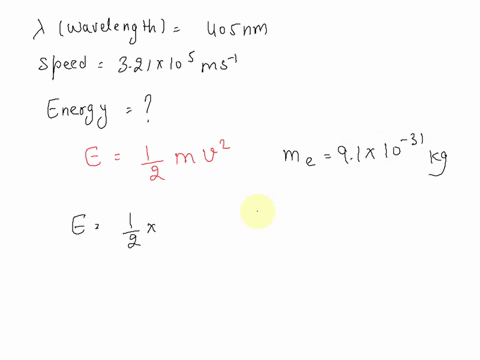 λ (wavelength) = 405nm
Speed = 3.21 × 10⁵ ms⁻¹
Energy = ?
E = 1/2 m v²
mₑ = 9.1 × 10⁻³¹ kg
E = 1/2 ×